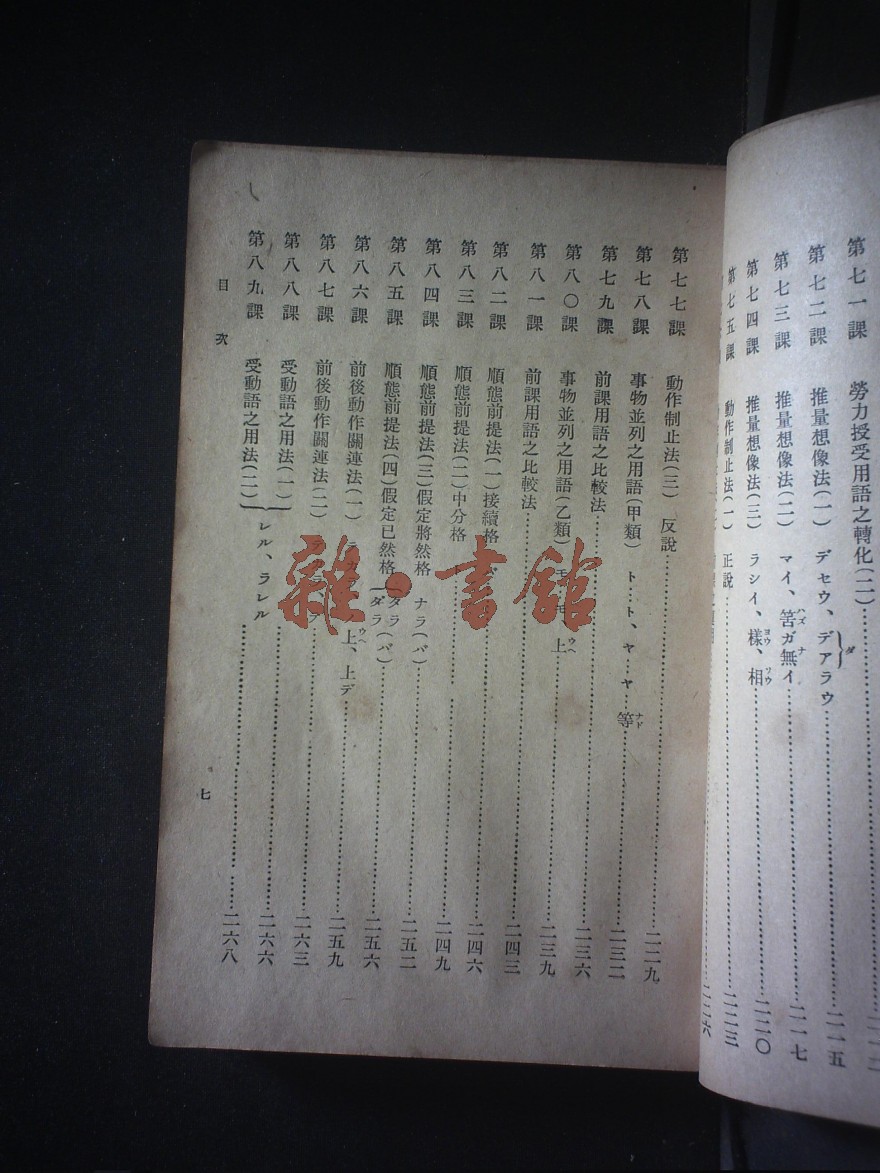 第七一課 勞力授受用語之轉化(二)
第七二課 推量想像法(一) デセウ、デアラウ ダ 二一五
第七三課 推量想像法(二) マイ、筈ガ無イ ハズ ナ 二一七
第七四課 推量想像法(三) ラシイ、樣、相 ヨウ ソウ 二二〇
第七五課 動作制止法(一) 正說 二二三
二二六
第七七課 動作制止法(三) 反說 二二九
第七八課 事物並列之用語(甲類) ト…ト、ヤ…ヤ…等 ナド 二三二
第七九課 前課用語之比較法 二三六
第八〇課 事物並列之用語(乙類) モ…モ、上 ウヘ 二三九
第八一課 前課用語之比較法 二四三
第八二課 順態前提法(一)接續格 二四六
第八三課 順態前提法(二)中分格 ト 二四九
第八四課 順態前提法(三)假定將然格 ナラ(バ) 二五二
第八五課 順態前提法(四)假定已然格 タラ(バ) ダラ(バ) 二五六
第八六課 前後動作關連法(一) 上、上デ ウヘ 二五九
第八七課 前後動作關連法(二) 二六三
第八八課 受動語之用法(一) 二六六
第八九課 受動語之用法(二) レル、ラレル 二六八
目次
七
雜·書館